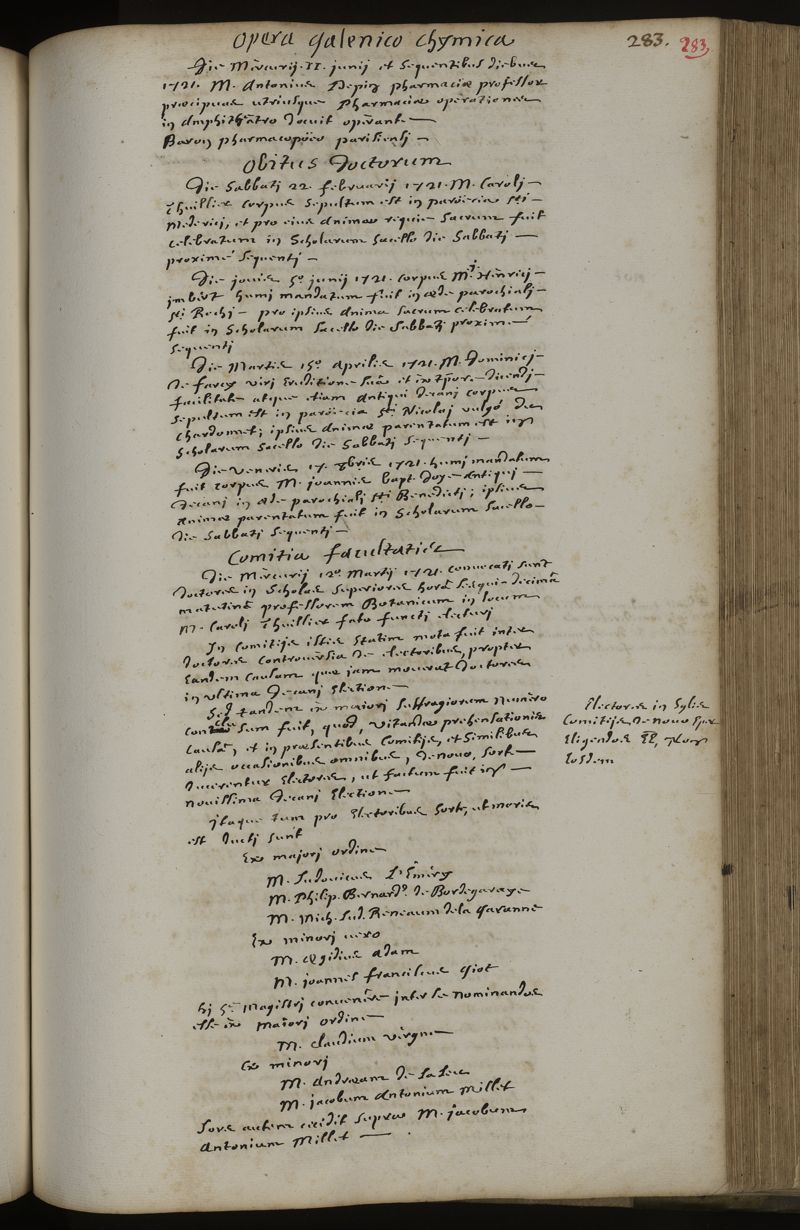 Opera galenico chymica
283. 283.
Die Mercurij 11. junij et sequentibus diebus
1721. M. Antonius Pepin pharmaciæ professor
præcipuas utriusque Pharmaciæ operationes
in Amphitheatro docuit operante
Baron pharmacopœo parisiensj
Obitus Doctorum
Die Sabbatj 22. februarij 1721. M. Carolj
Thuillier corpus sepultum est in parœcia sti
Mederici, et pro ejus animæ requie sacrum fuit
celebratum in Scholarum sacello die Sabbatj
proximè sequentj
Die jovis 5º junij 1721. corpus Mri Henricj
jmbert humj mandatum fuit in æde parochialj
sti Rochj pro ipsius anima sacrum celebratum
fuit in Scholarum sacello die Sabbatj proximè
sequentj
Die Martis 15º Aprilis 1721. M. Dominicj
de farcy virj Eruditione suâ et in tpore dicendj
facilitate atque etiam Antiqui decanj corpus
sepultum est in parœcia sti Nicolaj vulgó du
chardonnet; ipsius animæ parentatum est in
Scholarum sacello die Sabbatj sequentj
Die Veneris 17. 8bris 1721. humj mandatum
fuit corpus M. joannis bapt. Doye antiquj
Decanj in æde parochialj sti Benedictj; ipsius
animæ parentatum fuit in Scholarum sacello
die Sabbatj sequentj
Comitia facultatis
Die Mercurij 12º Martij 1721. convocatj sunt
Doctores in Scholas superiores horâ sesqui decimâ
matutinâ professorem Botanicum in locum
M. Carolj Thuillier fato functj electurj
In comitijs istis statim mota fuit inter
doctores controversia de electoribus, propter
Eandem causam quæ jam moverat Doctores
in ultima Decanj Electione
Sed tandem in maiorj suffragiorum numero
conclusum fuit, quod, vitandæ prehensationis
causâ, et in præsentibus comitijs, et similibus
alijs occasionibus omnibus, denovo, sorte
ducerentur Electores, ut factum fuit in
novissima Decanj Electione
Electores in Sylis
Comitijs denovo spr
Eligendos EE, non
Eosdem
jtaque tum pro Electoribus sorte, ut moris
est ductj sunt
Ex majorj ordine
M. Ludovicus L'Emery
M. Philip. Bernardº de Bordegaraye
M. Mich. Lud. Reneaum de la Garanne
Ex minorj vero
M. Ægidius Adam
M. joannes franciscus Giot
hj 5e Magistrj convenêre jnter se nominandos
esse in maiorj ordine
M. Claudium Virgne
Ex minorj
M. Andræam De
M. jacobum Antonium Millet
Sors autem cecidit supra M. jacobum
Antonium Millet